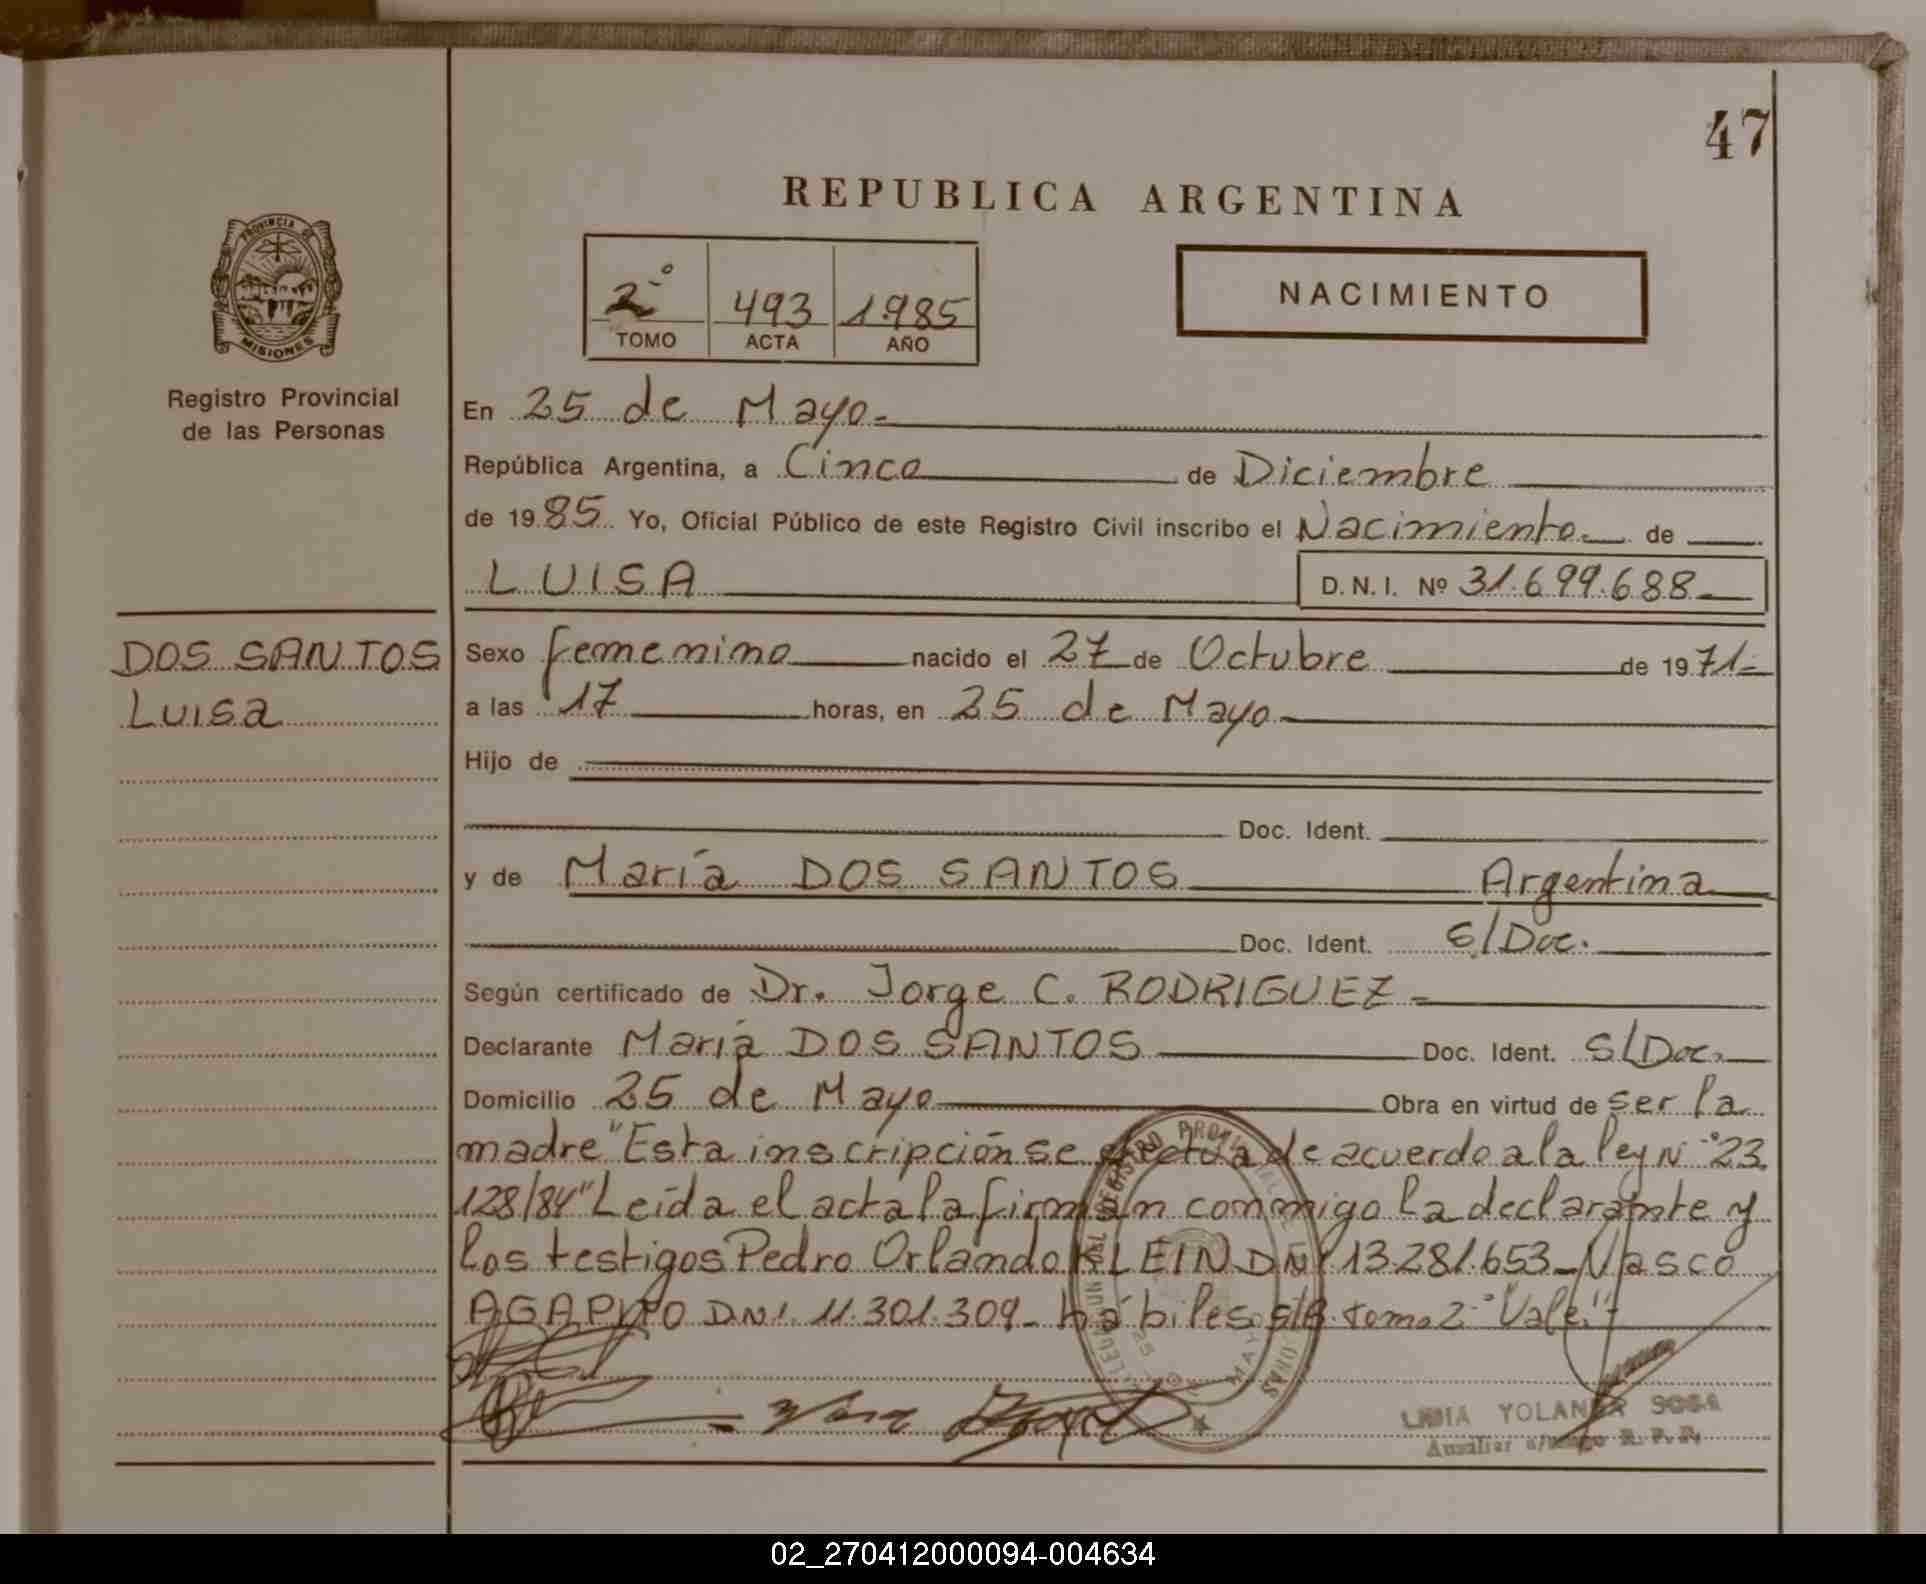 47
REPUBLICA ARGENTINA
PROVINCIA DE
MISIONES
Registro Provincial
de las Personas
2° 493 1985
TOMO ACTA AÑO
NACIMIENTO
En 25 de Mayo.-
República Argentina, a Cinco de Diciembre
de 1985 Yo, Oficial Público de este Registro Civil inscribo el Nacimiento de
LUISA D.N.I. Nº 31.699.688
DOS SANTOS
Luisa
Sexo femenino nacido el 27 de Octubre de 1971-
a las 17 horas, en 25 de Mayo
Hijo de
Doc. Ident.
y de María DOS SANTOS Argentina
Doc. Ident. S/Doc.
Según certificado de Dr. Jorge C. RODRIGUEZ-
Declarante María DOS SANTOS Doc. Ident. S/Doc.
Domicilio 25 de Mayo Obra en virtud de ser la
madre "Esta inscripción se efectúa de acuerdo a la ley N° 23.
128/84" Leída el acta la firman conmigo la declarante y
los testigos Pedro Orlando KLEIN DNI 13.281.653_Vasco
AGAPITO DNI. 11.301.309_ hábiles s/B. tomo 2° "Vale"-
LIDIA YOLANDA SOSA
Auxiliar a/cargo R. P. P.
02_270412000094-004634